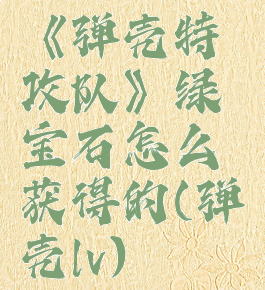 《弹壳特
攻队》绿
宝石怎么
获得的(弹
壳lv)